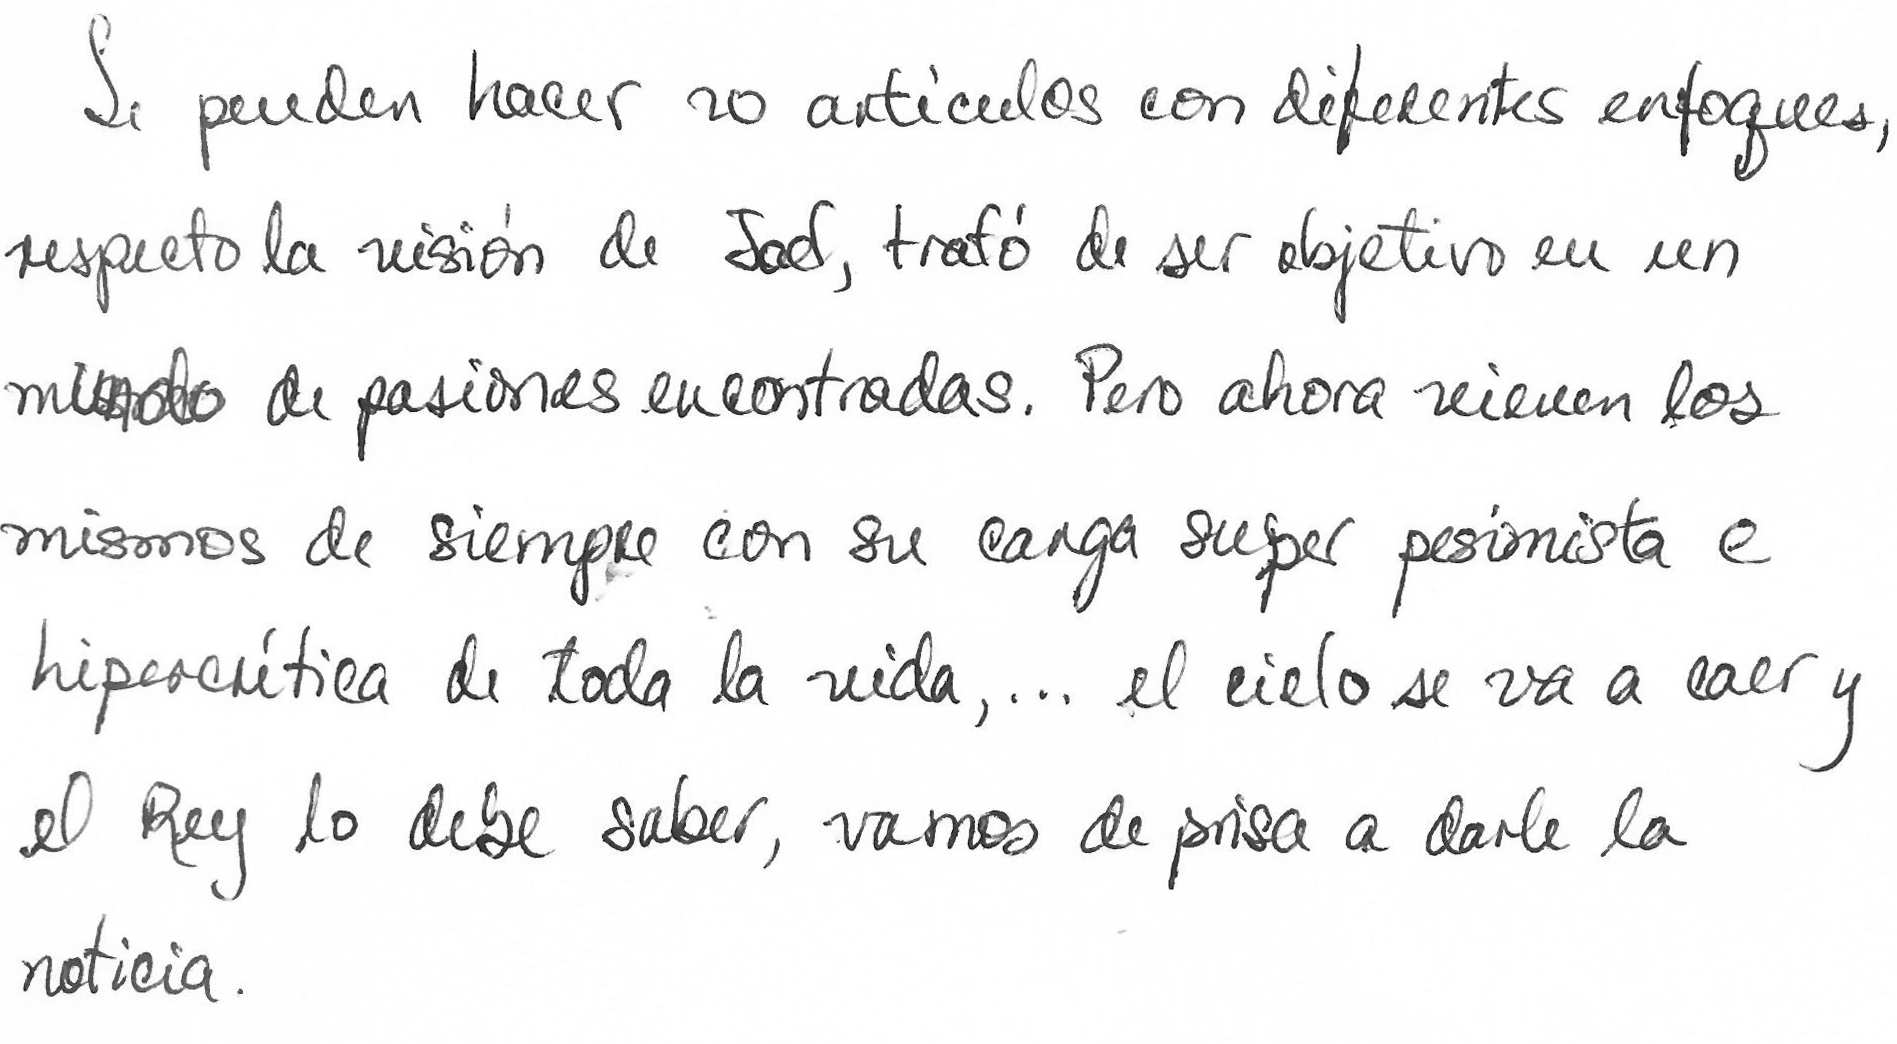 Se pueden hacer 20 artículos con diferentes enfoques,
respecto la visión de Jad, trató de ser objetivo en un
mundo de pasiones encontradas. Pero ahora vienen los
mismos de siempre con su carga super pesimista e
hipercrítica de toda la vida,... el cielo se va a caer y
el Rey lo debe saber, vamos de prisa a darle la
noticia.